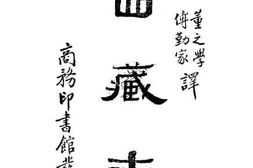 董之學
傅勤家
譯
藏
商務印書館